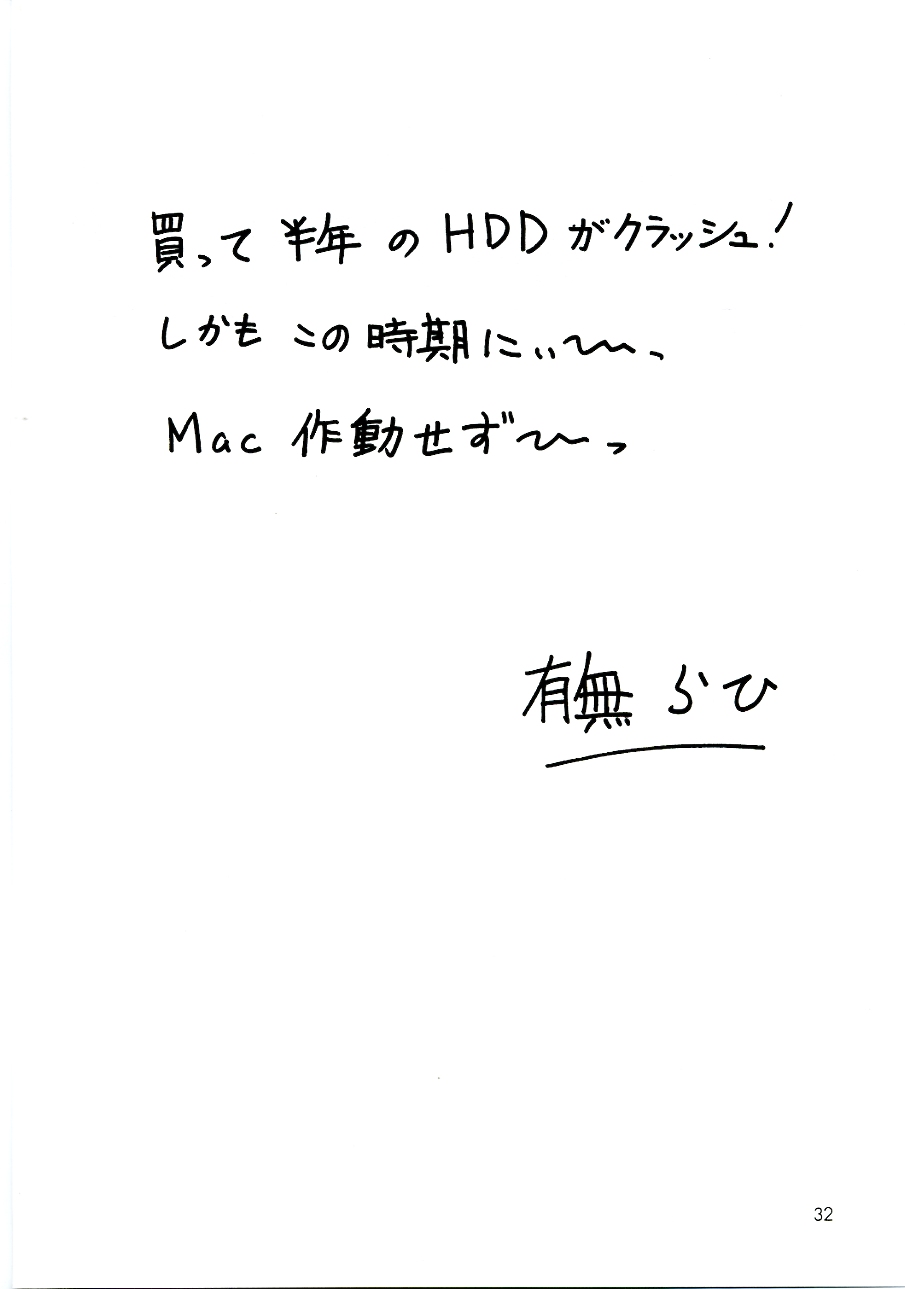 買って半年のHDDがクラッシュ!
しかもこの時期にぃぃ〜〜っ
Mac作動せず〜〜っ
有無らひ
32